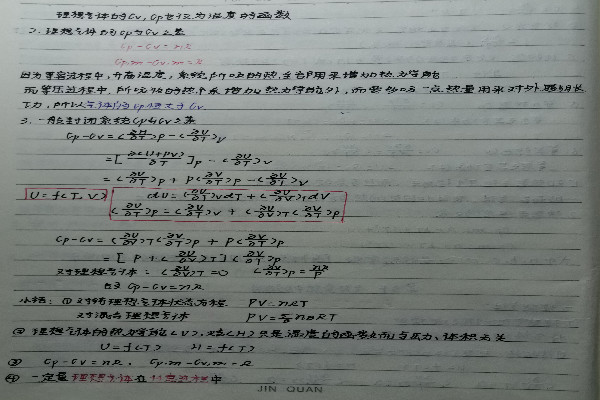 理想气体的Cv, Cp也仅为温度的函数
2. 理想气体的Cp与Cv之差
Cp - Cv = nR
Cp,m - Cv,m = R
因为等容过程中,升高温度,系统所吸的热全部用来增加热力学能
而等压过程中,所吸的热除增加热力学能外,而要多吸一点热量用来对外做
功,所以气体的Cp恒大于Cv
3. 一般封闭系统Cp与Cv之差
Cp-Cv = (∂H/∂T)p - (∂U/∂T)v
= [∂(U+PV)/∂T]p - (∂U/∂T)v
= (∂U/∂T)p + P(∂V/∂T)p - (∂U/∂T)v
U = f(T, V) dU = (∂U/∂T)v dT + (∂U/∂V)T dV
(∂U/∂T)p = (∂U/∂T)v + (∂U/∂V)T (∂V/∂T)p
Cp-Cv = (∂U/∂V)T (∂V/∂T)p + P(∂V/∂T)p
= [P + (∂U/∂V)T] (∂V/∂T)p
对理想气体: (∂U/∂V)T = 0 (∂V/∂T)p = nR/P
Cp-Cv = nR
小结: ① 对纯理想气体状态方程 PV = nRT
对混合理想气体 PV = RT
② 理想气体的热力学能(U), 焓(H)只是温度的函数而与压力、体积无关
U = f(T) H = f(T)
③ Cp-Cv = nR, Cp,m-Cv,m = R
④ 一定量理想气体在过程中
JIN QUAN